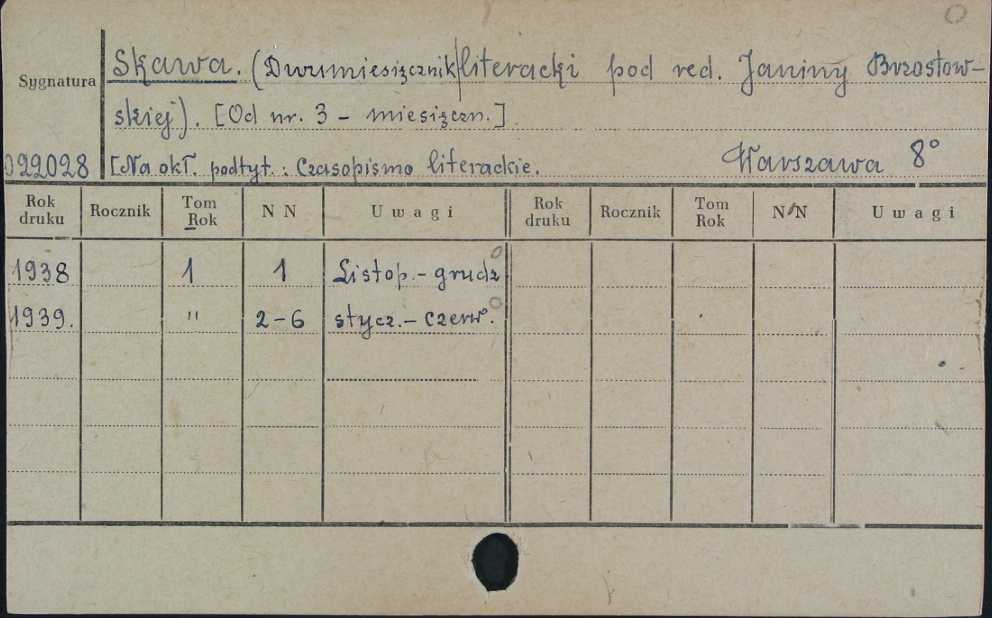 Skawa. (Dwumiesięcznik literacki pod red. Janiny Brzostow-
Sygnatura
skiej). [Od nr. 3 - miesięczn.].
022028 [Na okł. podtyt.: Czasopismo literackie. Warszawa 8°
Rok druku Rocznik Tom Rok N N Uwagi Rok druku Rocznik Tom Rok N N Uwagi
1938 1 1 Listop.- grudz
1939. " 2-6 stycz.- czerw.